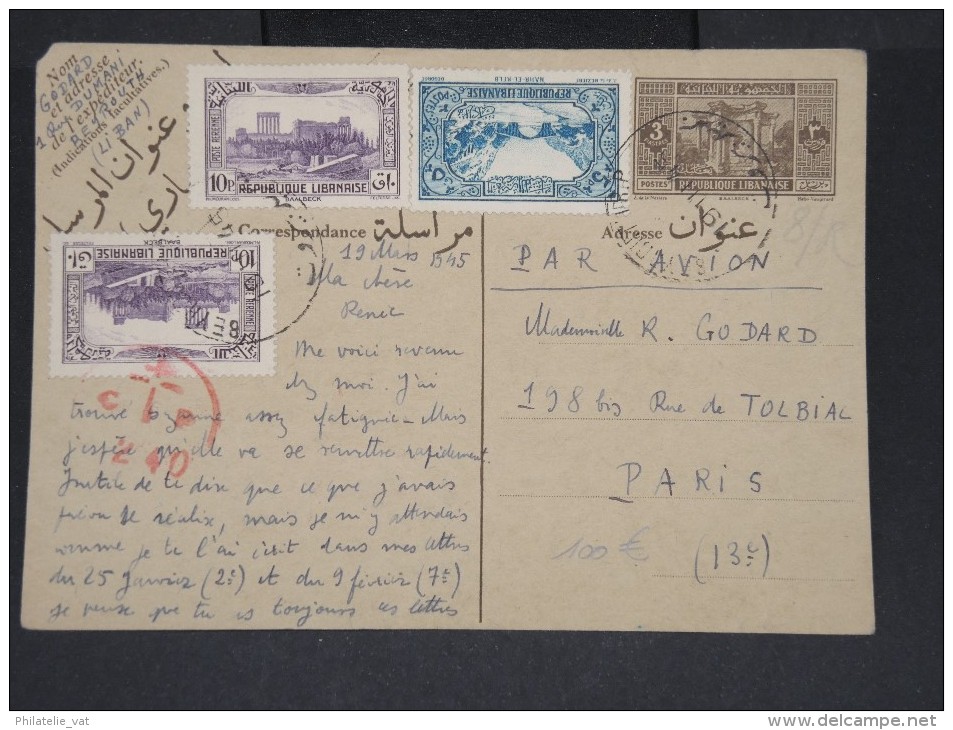 Nom
et adresse
de l'expéditeur.
(Indications facultatives.)
GODARD
Rue DUMANI
BEYROUTH
(LIBAN)
عنوان المرسل
POSTE AERIENNE
10P.
REPUBLIQUE LIBANAISE
BAALBECK
١٠ق
REPUBLIQUE LIBANAISE
NAHR-EL-KELB
3
POSTES
REPUBLIQUE LIBANAISE
BAALBECK
٣
POSTE AERIENNE
10P.
REPUBLIQUE LIBANAISE
BAALBECK
١٠ق
Correspondance مراسلة
Adresse عنوان
19 Mars 1945
Ma chère
Renée
Me voici revenu
chez moi. J'ai
trouvé Suzanne assez fatiguée - Mais
j'espère qu'elle va se remettre rapidement.
Inutile de te dire que ce que j'avais
prévu se réalise, mais je m'y attendais
comme je te l'ai écrit dans mes lettres
du 25 Janvier (2e) et du 9 février (7e)
je pense que tu as toujours ces lettres
PAR AVION
Mademoiselle R. GODARD
198 bis Rue de TOLBIAC
PARIS
(13e)
100€
C I P
240
Philatelie_vat
www.delcampe.net